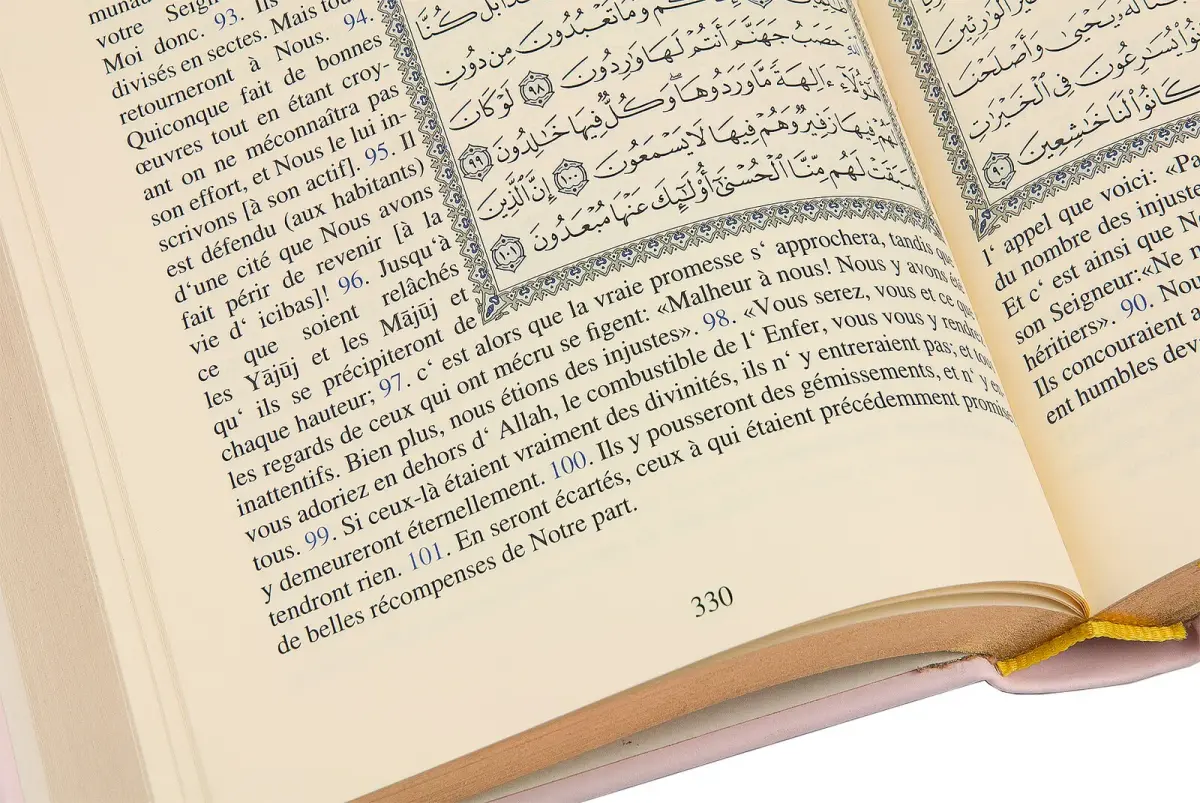 votre
Moi donc. 93. Ils
divisés en sectes. Mais
retourneront à Nous. 94.
Quiconque fait de bonnes
œuvres tout en étant croy-
ant on ne méconnaîtra pas
son effort, et Nous le lui in-
scrivons [à son actif]. 95. Il
est défendu (aux habitants)
d‘une cité que Nous avons
fait périr de revenir [à la
vie d‘ icibas]! 96. Jusqu‘à
ce que soient relâchés
les Yājūj et les Mājūj et
qu‘ ils se précipiteront de
chaque hauteur; 97. c‘ est alors que la vraie promesse s‘ approchera, tandis que
les regards de ceux qui ont mécru se figent: «Malheur à nous! Nous y avons
inattentifs. Bien plus, nous étions des injustes». 98. «Vous serez, vous et ce que
vous adoriez en dehors d‘ Allah, le combustible de l‘ Enfer, vous vous y
tous. 99. Si ceux-là étaient vraiment des divinités, ils n‘ y entreraient pas; et
y demeureront éternellement. 100. Ils y pousseront des gémissements, et n‘ y
tendront rien. 101. En seront écartés, ceux à qui étaient précédemment
de belles récompenses de Notre part.
كُنَّا
وَمَا تَعْبُدُونَ مِن دُونِ
حَصَبُ جَهَنَّمَ أَنتُمْ لَهَا وَٰرِدُونَ ٩٨ لَوْ كَانَ
ءَالِهَةً مَّا وَرَدُوهَا وَكُلٌّ فِيهَا خَٰلِدُونَ ٩٩
لَهُمْ فِيهَا زَفِيرٌ وَهُمْ فِيهَا لَا يَسْمَعُونَ ١٠٠ إِنَّ الَّذِينَ
سَبَقَتْ لَهُم مِّنَّا الْحُسْنَىٰ أُولَٰئِكَ عَنْهَا مُبْعَدُونَ ١٠١
330
الْوَٰرِثِينَ
لَهُ يَحْيَىٰ وَأَصْلَحْنَا
يُسَٰرِعُونَ فِي الْخَيْرَٰتِ
وَكَانُوا لَنَا خَٰشِعِينَ ٩٠
l‘ appel que voici:
du nombre des
Et c‘ est ainsi que
son Seigneur:«Ne
héritiers». 90.
Ils concouraient
ent humbles